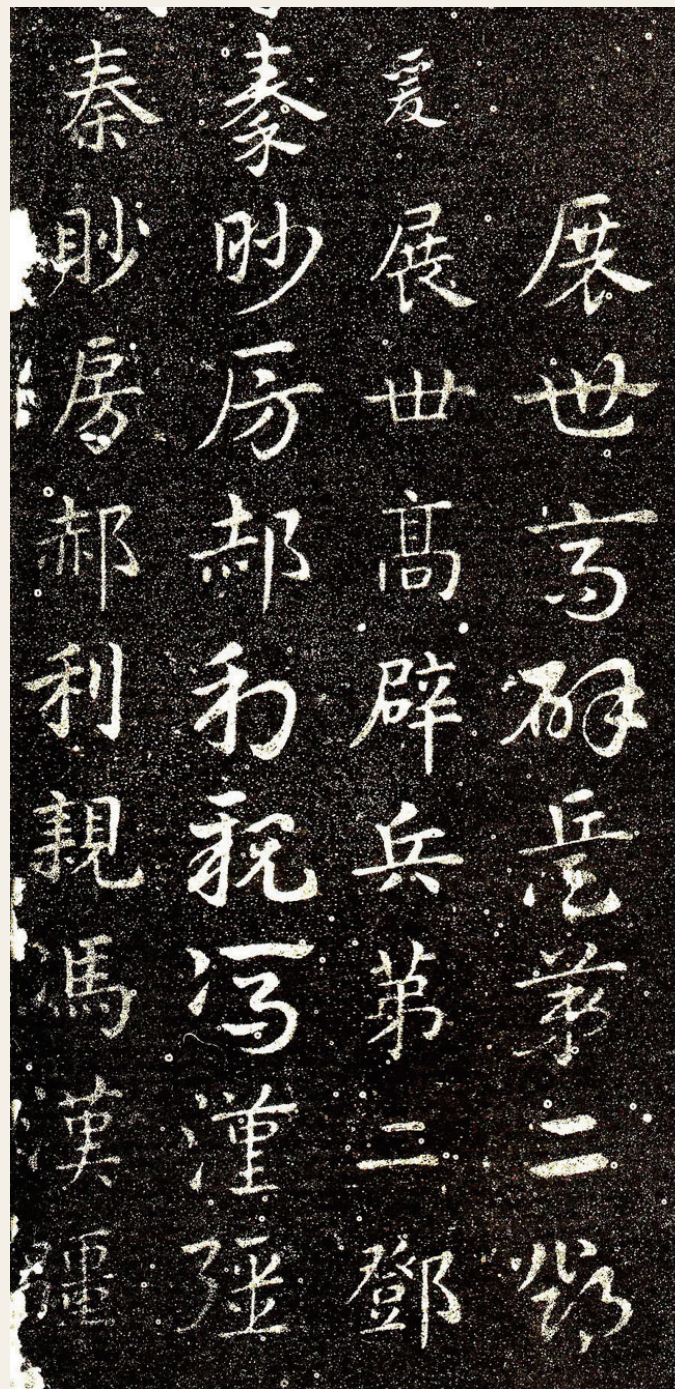 展世高辟兵第二鄧
爰展世髙辟兵第二鄧
秦眇房郝利親馮漢彊
秦眇房郝利親馮漢彊